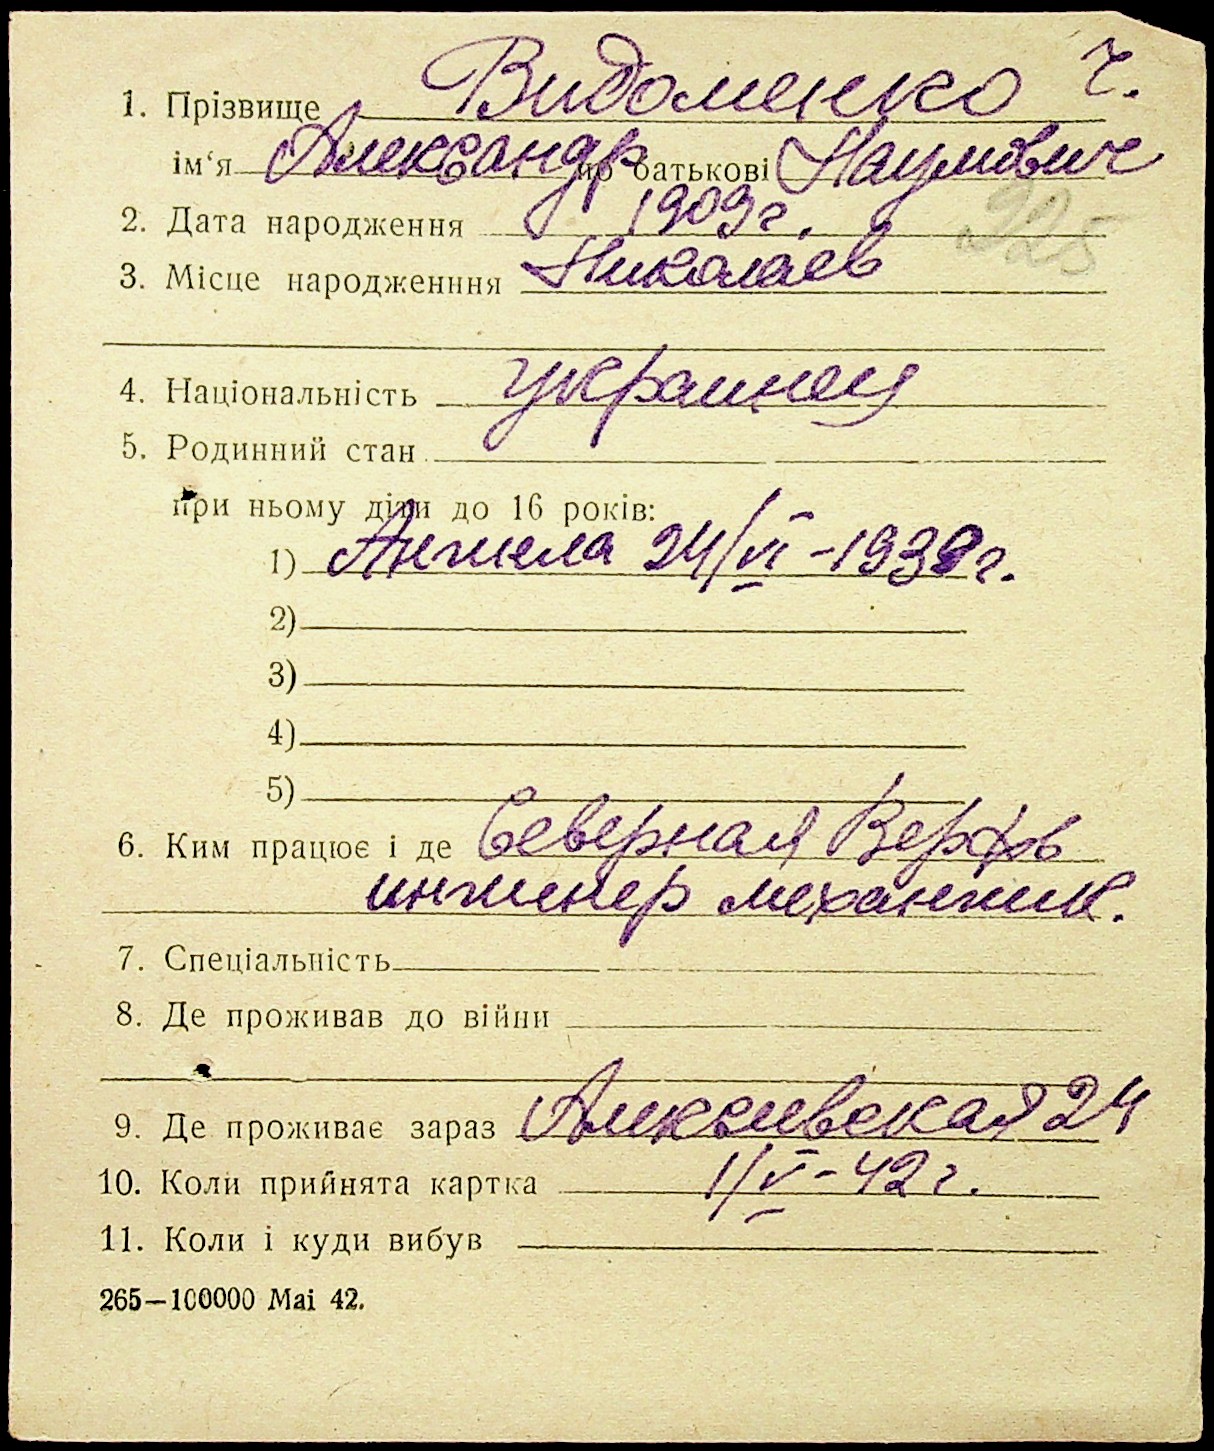 1. Прізвище Видоменко Ч.
ім‘я Александр по батькові Наумович
2. Дата народження 1909 г.
325
3. Місце народженння Николаев
4. Національність украинец
5. Родинний стан
при ньому діти до 16 років:
1) Анжела 24/VI – 1938 г.
2)
3)
4)
5)
6. Ким працює і де Северная Верфь
инженер механик.
7. Спеціальність
8. Де проживав до війни
9. Де проживає зараз 24
10. Коли прийнята картка 1/VI – 42 г.
11. Коли і куди вибув
265—100000 Mai 42.